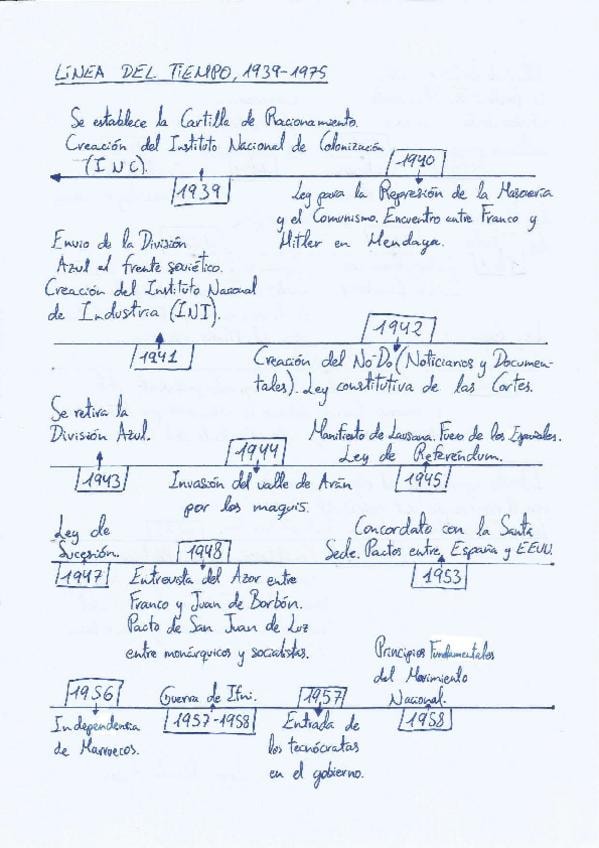 LÍNEA DEL TIEMPO, 1939-1975
Se establece la Cartilla de Racionamiento.
Creación del Instituto Nacional de Colonización
(INC).
1940
1939
Ley para la Represión de la Masonería
y el Comunismo. Encuentro entre Franco y
Hitler en Hendaya.
Envío de la División
Azul al frente soviético.
Creación del Instituto Nacional
de Industria (INI).
1942
1941
Creación del No-Do (Noticiarios y Documen-
tales). Ley constitutiva de las Cortes.
Se retira la
División Azul.
1944
Manifiesto de Lausana. Fuero de los Españoles.
Ley de Referéndum.
1943
Invasión del valle de Arán
por los maquis.
1945
Ley de
Sucesión.
1948
Concordato con la Santa
Sede. Pactos entre España y EEUU.
1947
Entrevista del Azor entre
Franco y Juan de Borbón.
Pacto de San Juan de Luz
entre monárquicos y socialistas.
1953
Principios Fundamentales
del Movimiento
Nacional.
1956
Guerra de Ifni.
1957
Independencia
de Marruecos.
1957-1958
Entrada de
los tecnócratas
en el gobierno.
1958